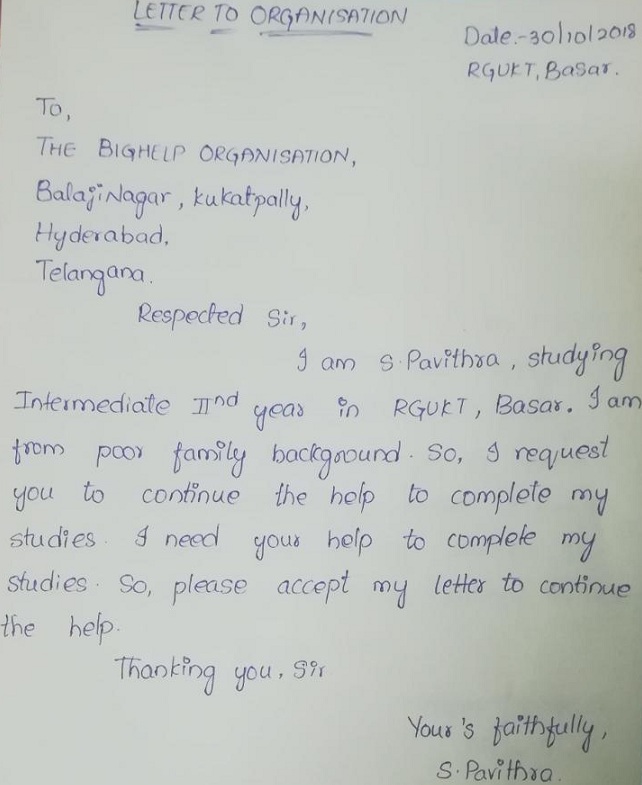 LETTER TO ORGANISATION
Date.-30/10/2018
RGUKT, Basar.
To,
THE BIGHELP ORGANISATION,
BalajiNagar, kukatpally,
Hyderabad,
Telangana.
Respected Sir,
I am S.Pavithra, studying
Intermediate IInd year in RGUKT, Basar. I am
from poor family background. So, I request
you to continue the help to complete my
studies. I need your help to complete my
studies. So, please accept my letter to continue
the help.
Thanking you, Sir
Your's faithfully,
S.Pavithra.